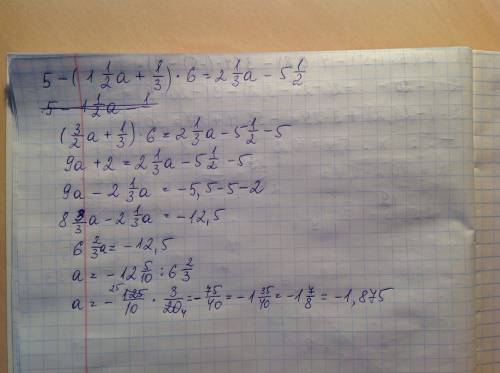 5 - (1 1/2 a + 1/3) · 6 = 2 1/3 a - 5 1/2
5 - 1 1/2 a 1
(3/2 a + 1/3) · 6 = 2 1/3 a - 5 1/2 - 5
9a + 2 = 2 1/3 a - 5 1/2 - 5
9a - 2 1/3 a = -5,5 - 5 - 2
8 3/3 a - 2 1/3 a = -12,5
6 2/3 a = -12,5
a = -12 5/10 : 6 2/3
a = - 25 125/10 · 3/20 4 = - 75/40 = -1 35/40 = -1 7/8 = -1,875